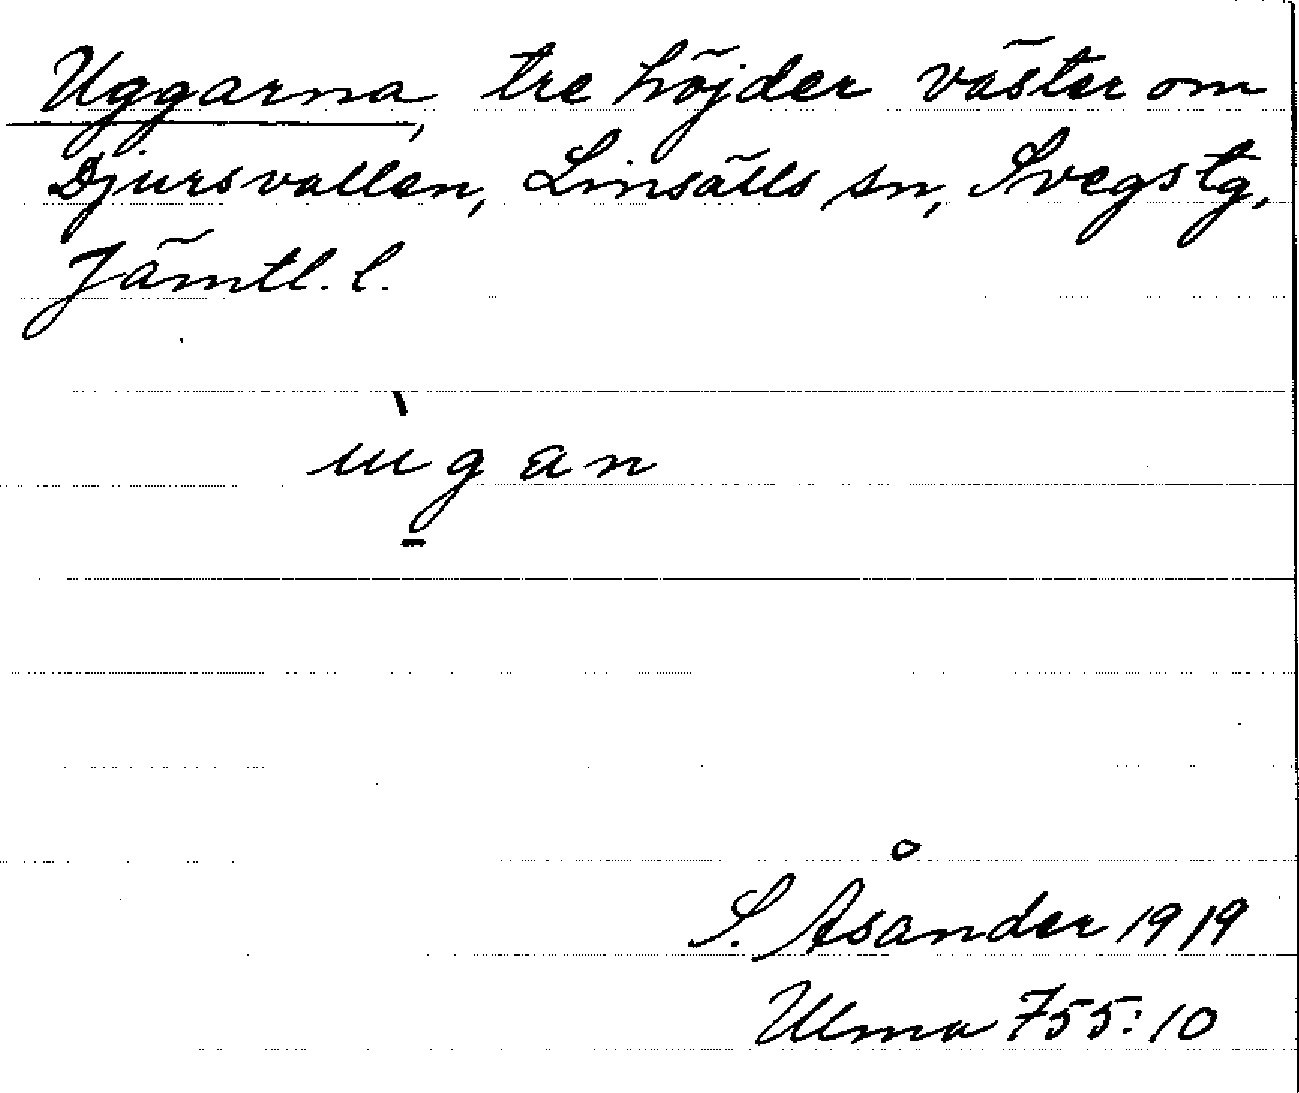 Uggarna, tre höjder väster om
Djursvallen, Linsälls sn, Svegs tg,
Jämtl. l.
S. Åsander 1919
Ulma 755:10